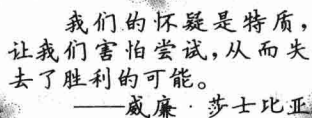 我们的怀疑是特质，
让我们害怕尝试，从而失
去了胜利的可能。
——威廉·莎士比亚